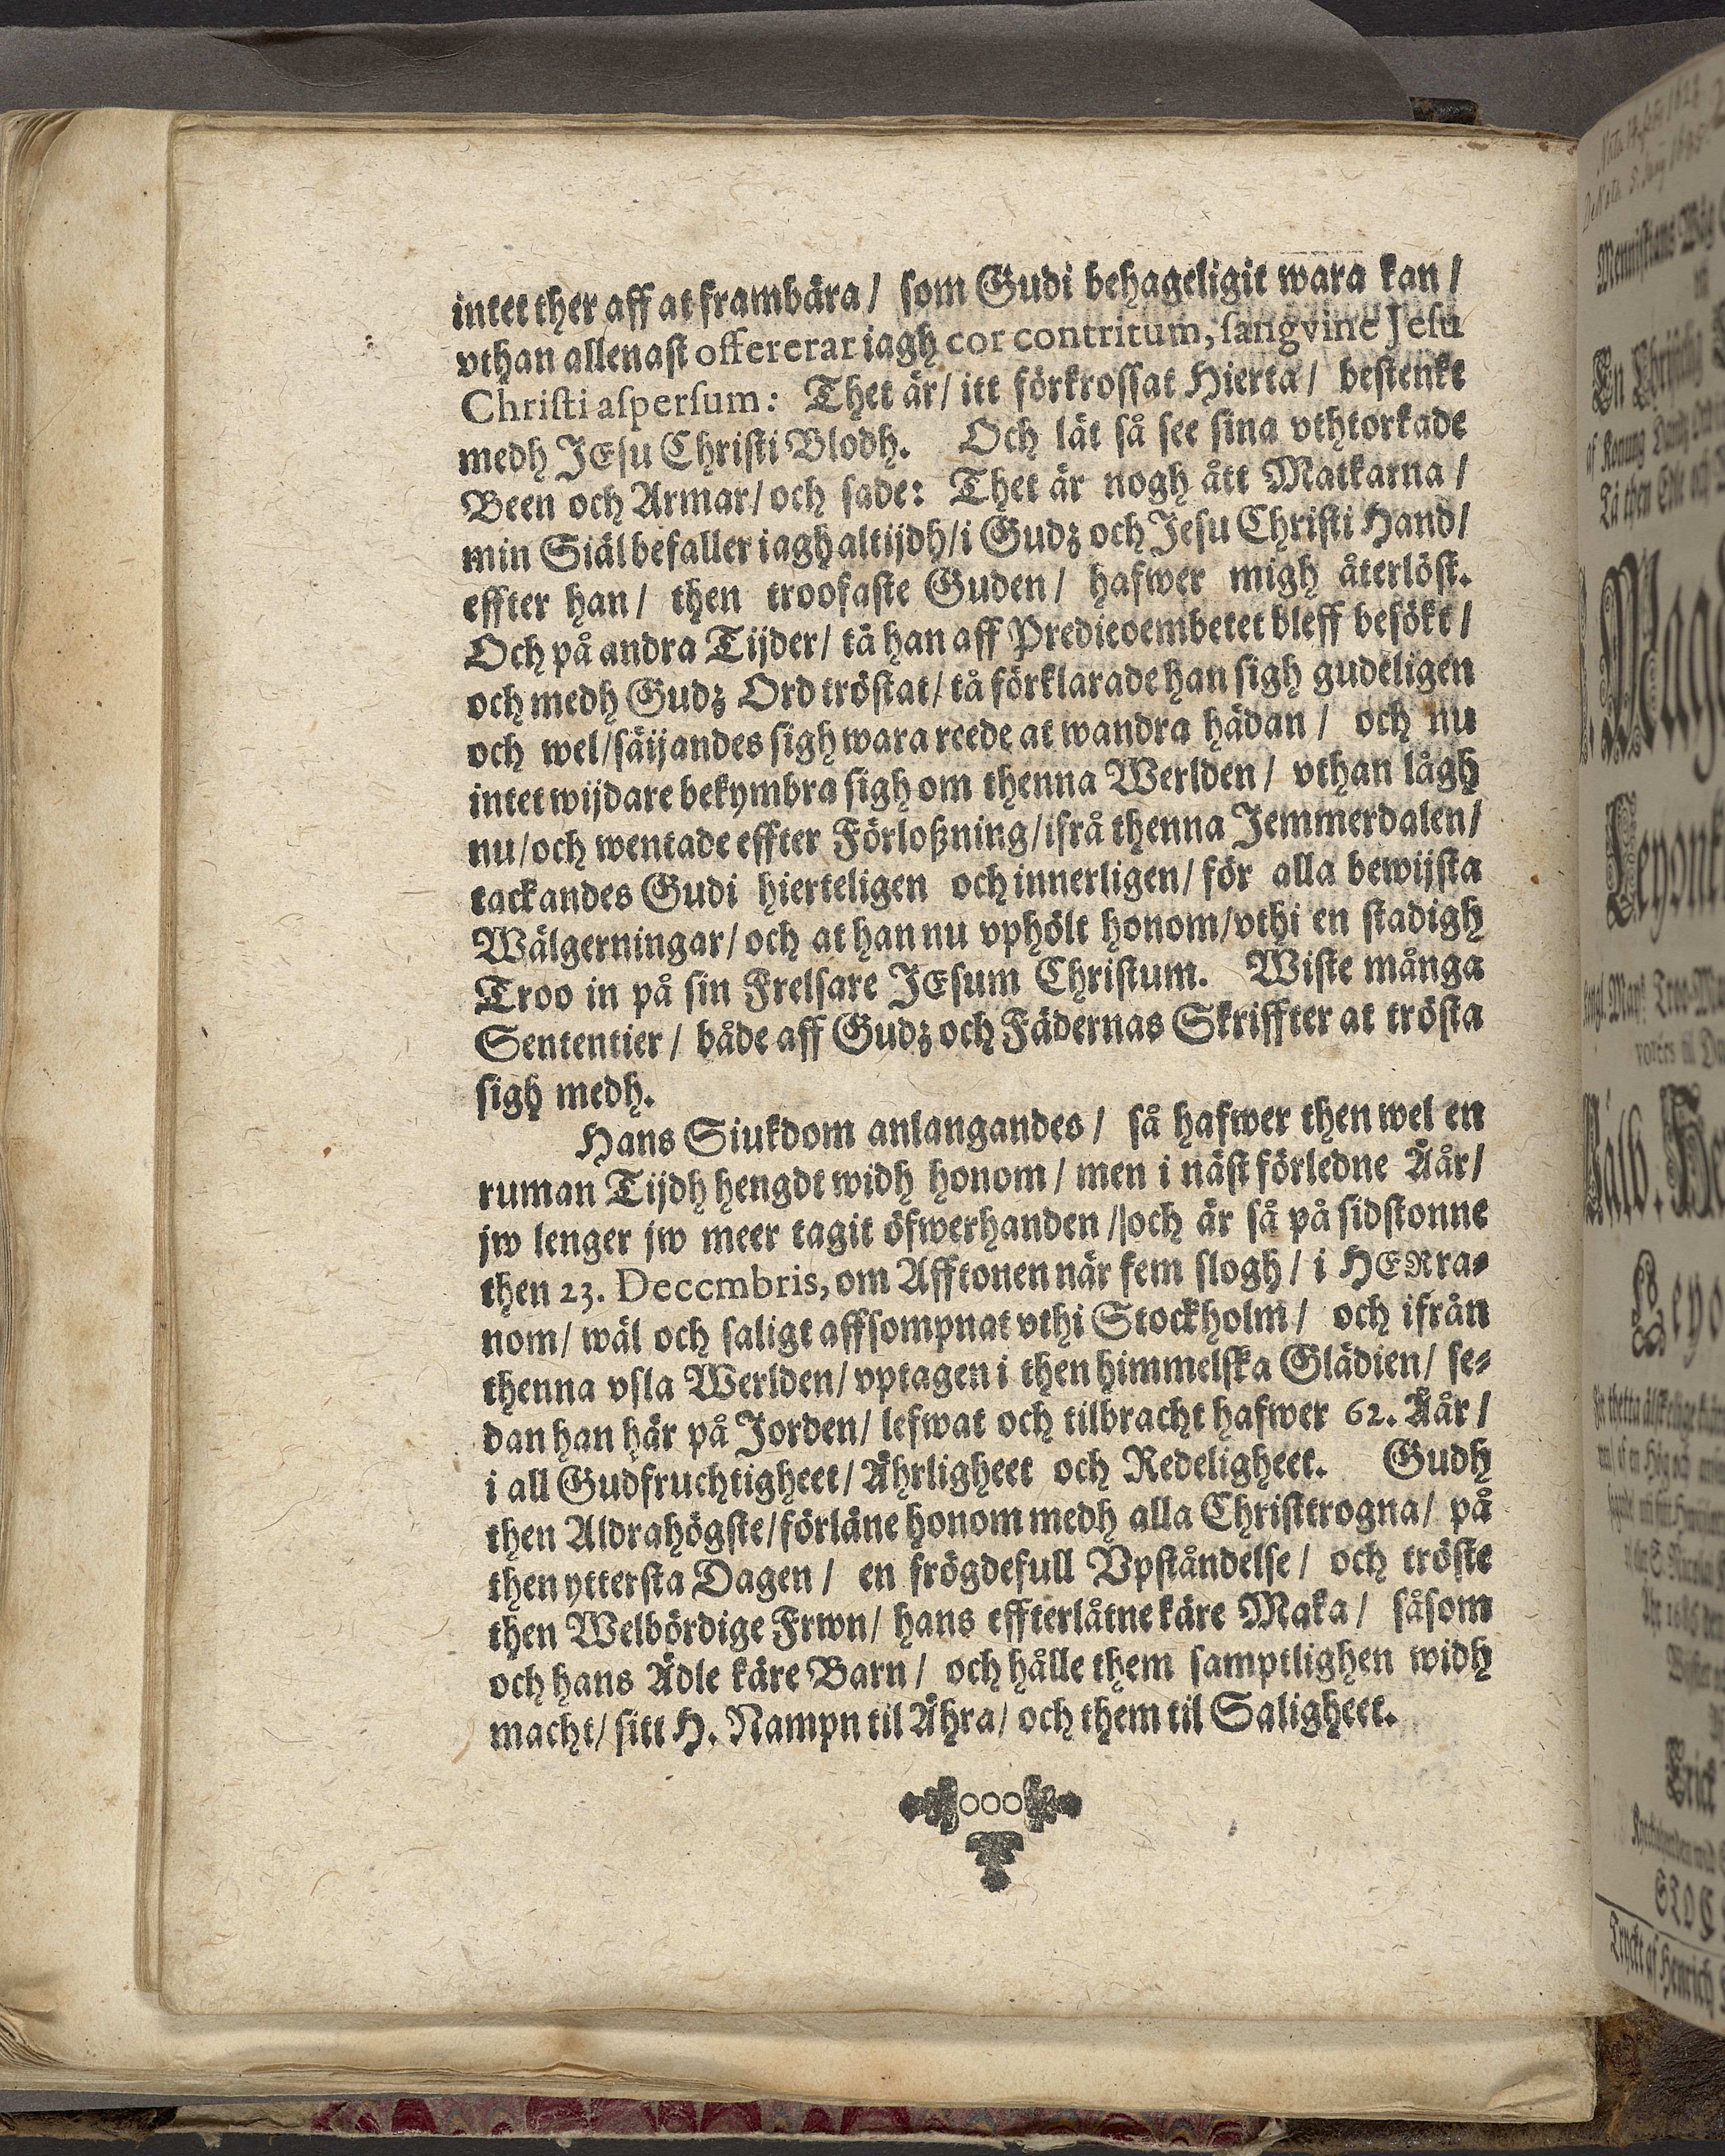 intet ther aff at frambära / som Gudi behageligit wara kan /
vthan allenast offererar iagh cor contritum, sangvine Jesu
Christi aspersum: Thet är / itt förkrossat Hierta / bestenkt
medh JEsu Christi Blodh. Och lät så see sina vthtorkade
Been och Armar / och sade: Thet är nogh ått Matkarna /
min Siäl befaller iagh altijdh / i Gudz och Jesu Christi Hand /
effter han / then troofaste Guden / hafwer migh återlöst.
Och på andra Tijder / tå han aff Predicoembetet bleff besökt /
och medh Gudz Ord tröstat / tå förklarade han sigh gudeligen
och wel / säijandes sigh wara reede at wandra hädan / och nu
intet wijdare bekymbra sigh om thenna Werlden / vthan lågh
nu / och wentade effter Förloßning / ifrå thenna Jemmerdalen /
tackandes Gudi hierteligen och innerligen / för alla bewijsta
Wälgerningar / och at han nu vphölt honom / vthi en stadigh
Troo in på sin Frelsare JEsum Christum. Wiste många
Sententier / både aff Gudz och Fädernas Skriffter at trösta
sigh medh.
Hans Siukdom anlangandes / så hafwer then wel en
ruman Tijdh hengdt widh honom / men i näst förledne Åår /
jw lenger jw meer tagit öfwerhanden / och är så på sidstonne
then 23. Deccmbris, om Afftonen när fem slogh / i HERra-
nom / wäl och saligt affsompnat vthi Stockholm / och ifrån
thenna vsla Werlden / vptagen i then himmelska Glädien / se-
dan han här på Jorden / lefwat och tilbracht hafwer 62. Åår /
i all Gudfruchtigheet / Ährligheet och Redeligheet. Gudh
then Aldrahögste / förläne honom medh alla Christtrogna / på
then yttersta Dagen / en frögdefull Vpståndelse / och tröste
then Welbördige Frwn / hans effterlåtne käre Maka / såsom
och hans Ädle käre Barn / och hålle them samptlighen widh
macht / sitt H. Nampn til Ähra / och them til Saligheet.